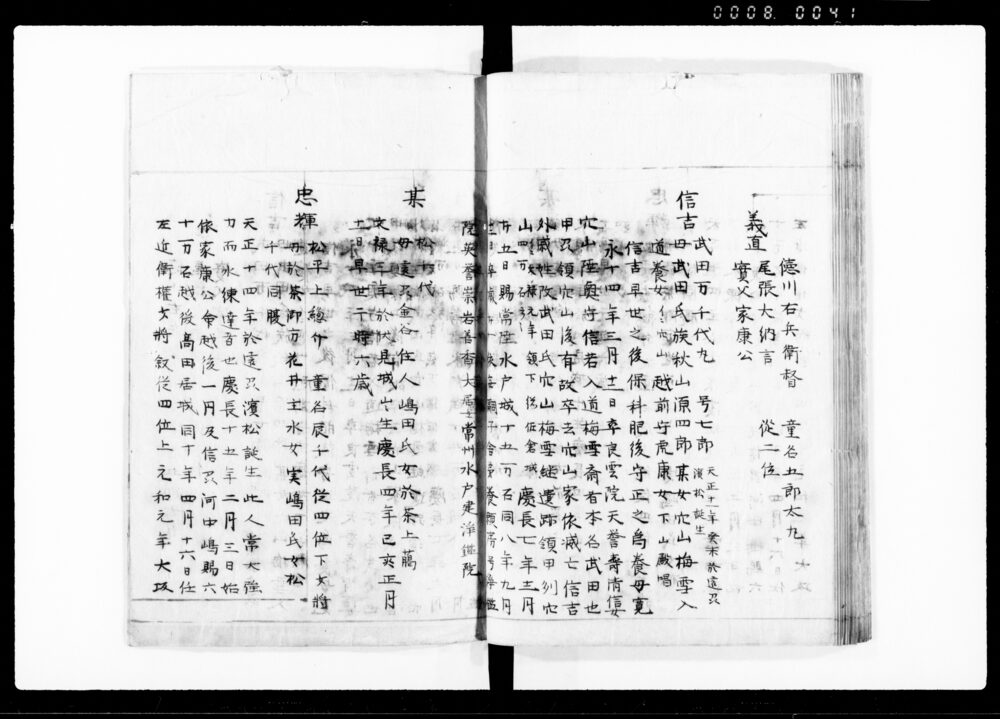 0008 0041
義直 徳川右兵衛督 童名五郎太丸
尾張大納言 從二位
實父家康公
信吉 武田万千代丸 号七郎 天正十一年癸未於遠刕
濱松誕生
母武田氏族秋山源四郎某女穴山梅雪入
道養女 穴山越前守虎康女下山殿唱
信吉早世之後保科肥後守正之為養母寛
永十四年三月十二日卒良雲院天誉寿清信
穴山陸奥守信君入道梅雪斎者本名武田也
甲刕領穴山後有故卒去穴山家依滅亡信吉
外戚姓改武田氏穴山梅雪継遺跡領甲刕穴
山四万石 領下総佐倉城 慶長七年十一月
廿五日賜常陸水户城十五万石同八年九月
院英誉崇岩善香大居士常州水户建淨鑑院
某 松千代
母遠刕金谷住人嶋田氏女於茶上﨟
文禄三年於伏見城出生慶長四年己亥正月
十二日早世于時六歳
忠輝 松平上総介 童名辰千代從四位下少将
母於茶御方花井主水女実嶋田氏女松
千代同腹
天正十四年於遠刕濱松誕生此人常大強
力而水練達者也慶長十五年二月三日始
依家康公命越後一円及信刕河中嶋賜六
十万石越後高田居城同十年四月十六日任
左近衛権少将叙従四位上元和元年大坂